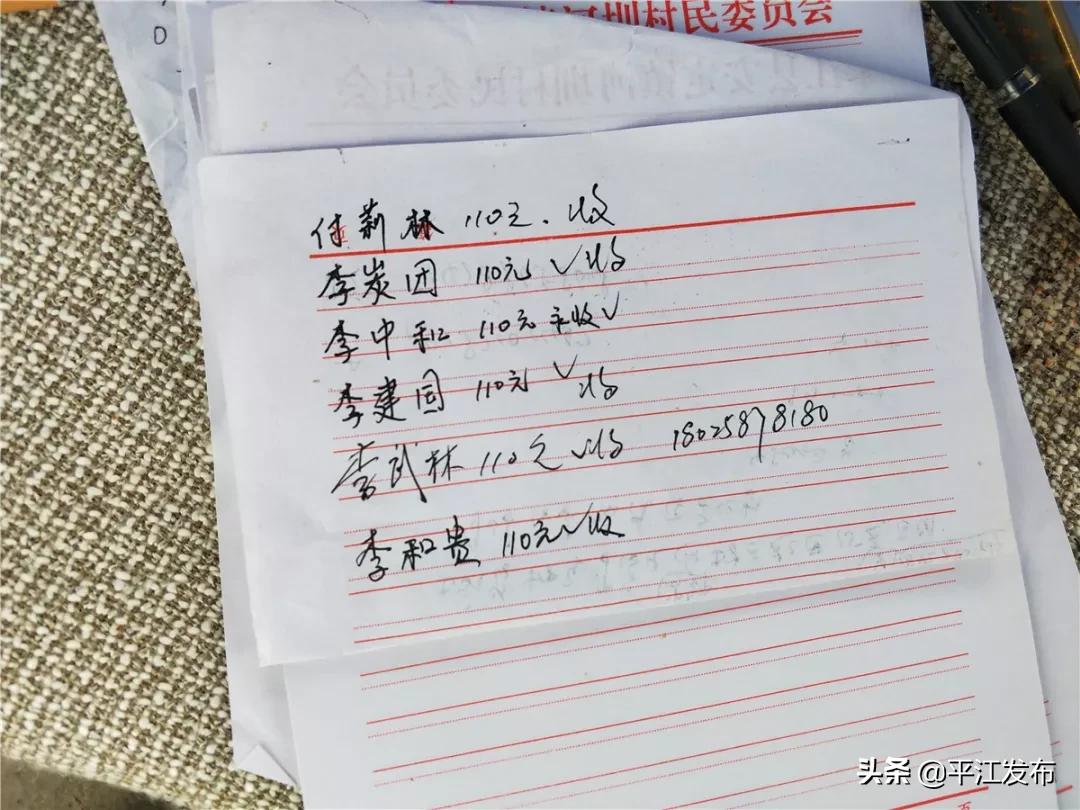 圳村民委员会
付莉林 110元. 收
李炭团 110元 √ 收
李中和 110元 未收 √
李建国 110元 √ 收
李武林 110元 √ 收 18025878180
李和贵 110元 √ 收
头条 @平江发布